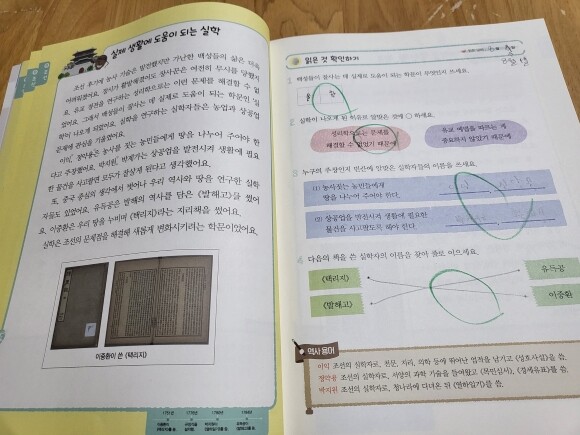 실제 생활에 도움이 되는 실학
조선 후기에 농사 기술은 발전했지만 가난한 백성들의 삶은 더욱
어려워졌어요. 장사가 활발해졌어도 장사꾼은 여전히 무시를 당했지
요. 유교 경전을 연구하는 성리학으로는 이런 문제를 해결할 수 없
었어요. 그래서 백성들이 잘사는 데 실제로 도움이 되는 학문인 '실
학'이 나오게 되었어요. 실학을 연구하는 실학자들은 농업과 상공업
문제에 관심을 기울였어요.
이익, 정약용은 농사를 짓는 농민들에게 땅을 나누어 주어야 한
다고 주장했어요. 박지원, 박제가는 상공업을 발전시켜 생활에 필요
한 물건을 사고팔면 모두가 잘살게 된다고 생각했어요.
또, 중국 중심의 생각에서 벗어나 우리 역사와 땅을 연구한 실학
자들도 있었어요. 유득공은 발해의 역사를 담은 《발해고》를 썼어
요. 이중환은 우리 땅을 누비며 《택리지》라는 지리책을 썼어요.
실학은 조선의 문제점을 해결해 새롭게 변화시키려는 학문이었어요.
이중환이 쓴 《택리지》
읽은 것 확인하기
1 백성들이 잘사는 데 실제로 도움이 되는 학문이 무엇인지 쓰세요.
실 학
2 실학이 나오게 된 이유로 알맞은 것에 ○ 하세요.
성리학으로는 문제를
해결할 수 없었기 때문에
유교 예법을 따르는 게
중요하지 않았기 때문에
3 누구의 주장인지 빈칸에 알맞은 실학자들의 이름을 쓰세요.
(1) 농사짓는 농민들에게
땅을 나누어 주어야 한다.
(2) 상공업을 발전시켜 생활에 필요한
물건을 사고팔도록 해야 한다.
4 다음의 책을 쓴 실학자의 이름을 찾아 줄로 이으세요.
《택리지》
유득공
《발해고》
이중환
역사 용어
이익 조선의 실학자로, 천문, 지리, 의학 등에 뛰어난 업적을 남기고 《성호사설》을 씀.
정약용 조선의 실학자로, 서양의 과학 기술을 들여왔고 《목민심서》, 《경세유표》를 씀.
박지원 조선의 실학자로, 청나라에 다녀온 뒤 《열하일기》를 씀.